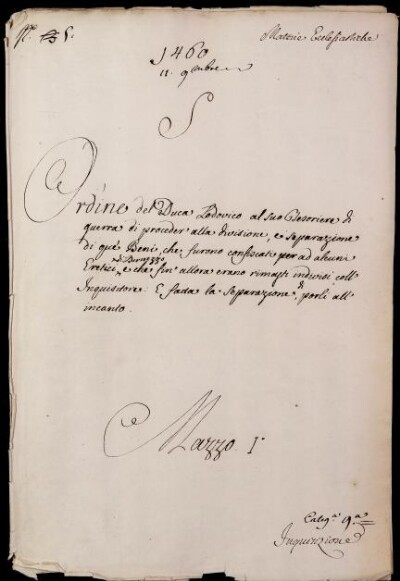 Materie Ecclesiastiche
1460
11. 9mbre
Ordine del Duca Lodovico al suo Tesoriere di
guerra di proceder alla divisione, e separazione
di que' Beni, che furono confiscati per ad alcuni
di Buruzzo
Eretici, e che fin' allora erano rimasti indivisi coll'
Inquisitore. E fatta la separazione, di porli all'
incanto.
Mazzo 1°
Categ.a 9.a
Inquisizione